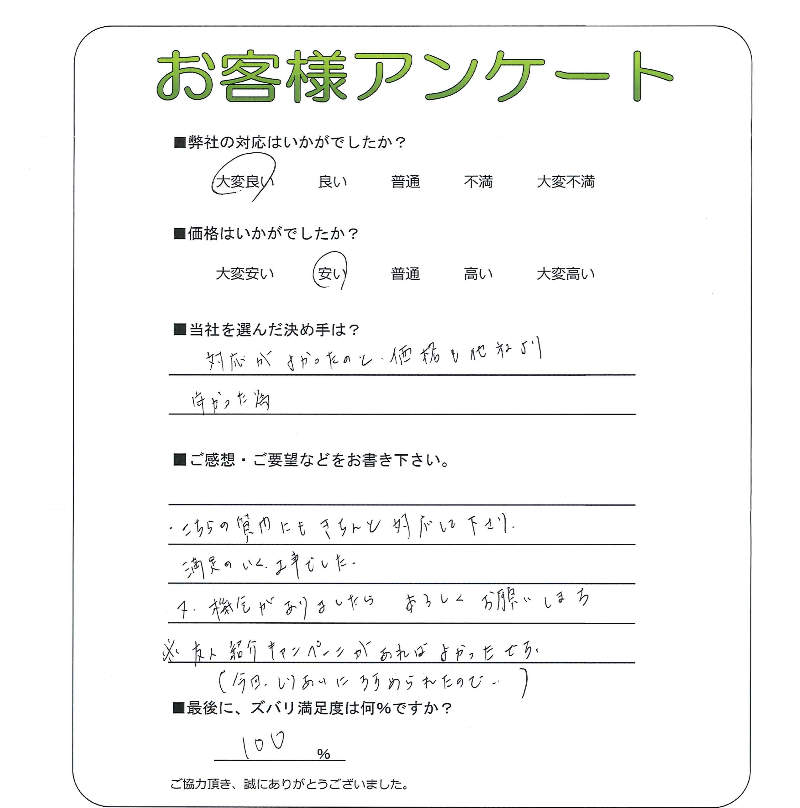 お客様アンケート
■弊社の対応はいかがでしたか？
大変良い 良い 普通 不満 大変不満
■価格はいかがでしたか？
大変安い 安い 普通 高い 大変高い
■当社を選んだ決め手は？
対応がよかったのと、価格も他社より
安かった為
■ご感想・ご要望などをお書き下さい。
・こちらの質問にもきちんと対応して下さり、
満足のいく工事でした。
又、機会がありましたらよろしくお願いします
※友人紹介キャンペーンがあればよかったです。
(今回、しりあいにすすめられたので‥)
■最後に、ズバリ満足度は何%ですか？
100 %
ご協力頂き、誠にありがとうございました。